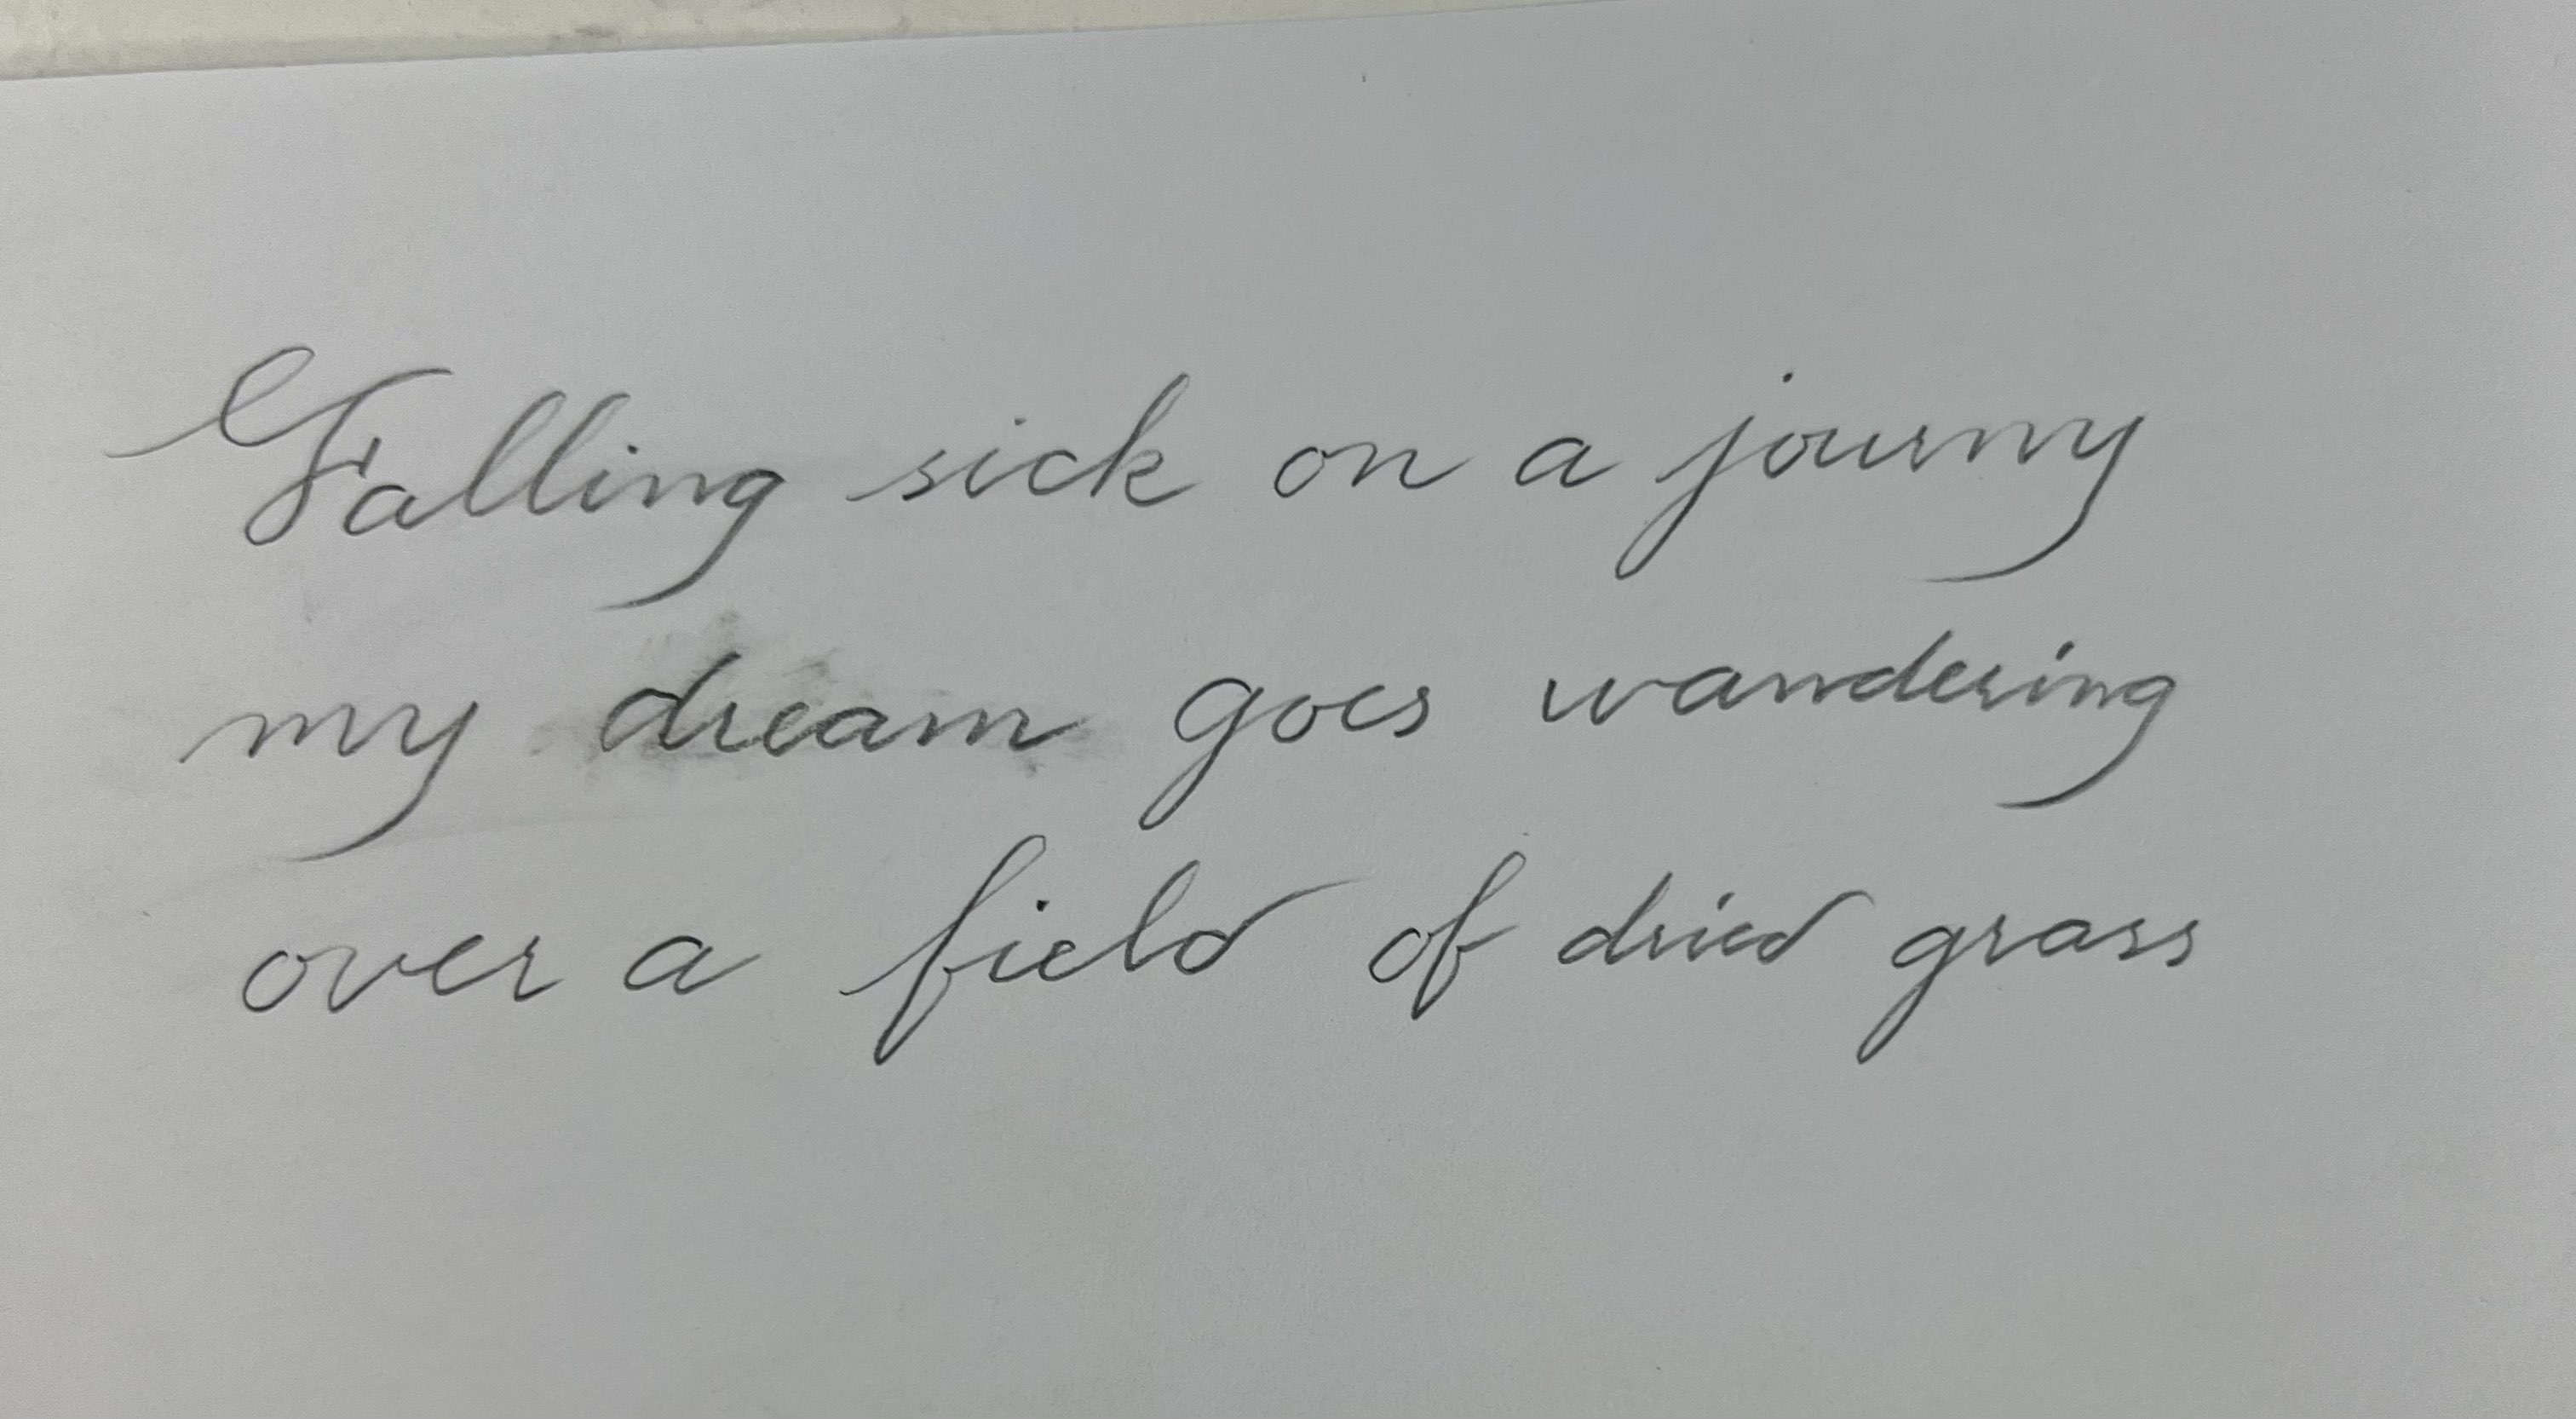 Falling sick on a journy
my dream goes wandering
over a field of dried grass